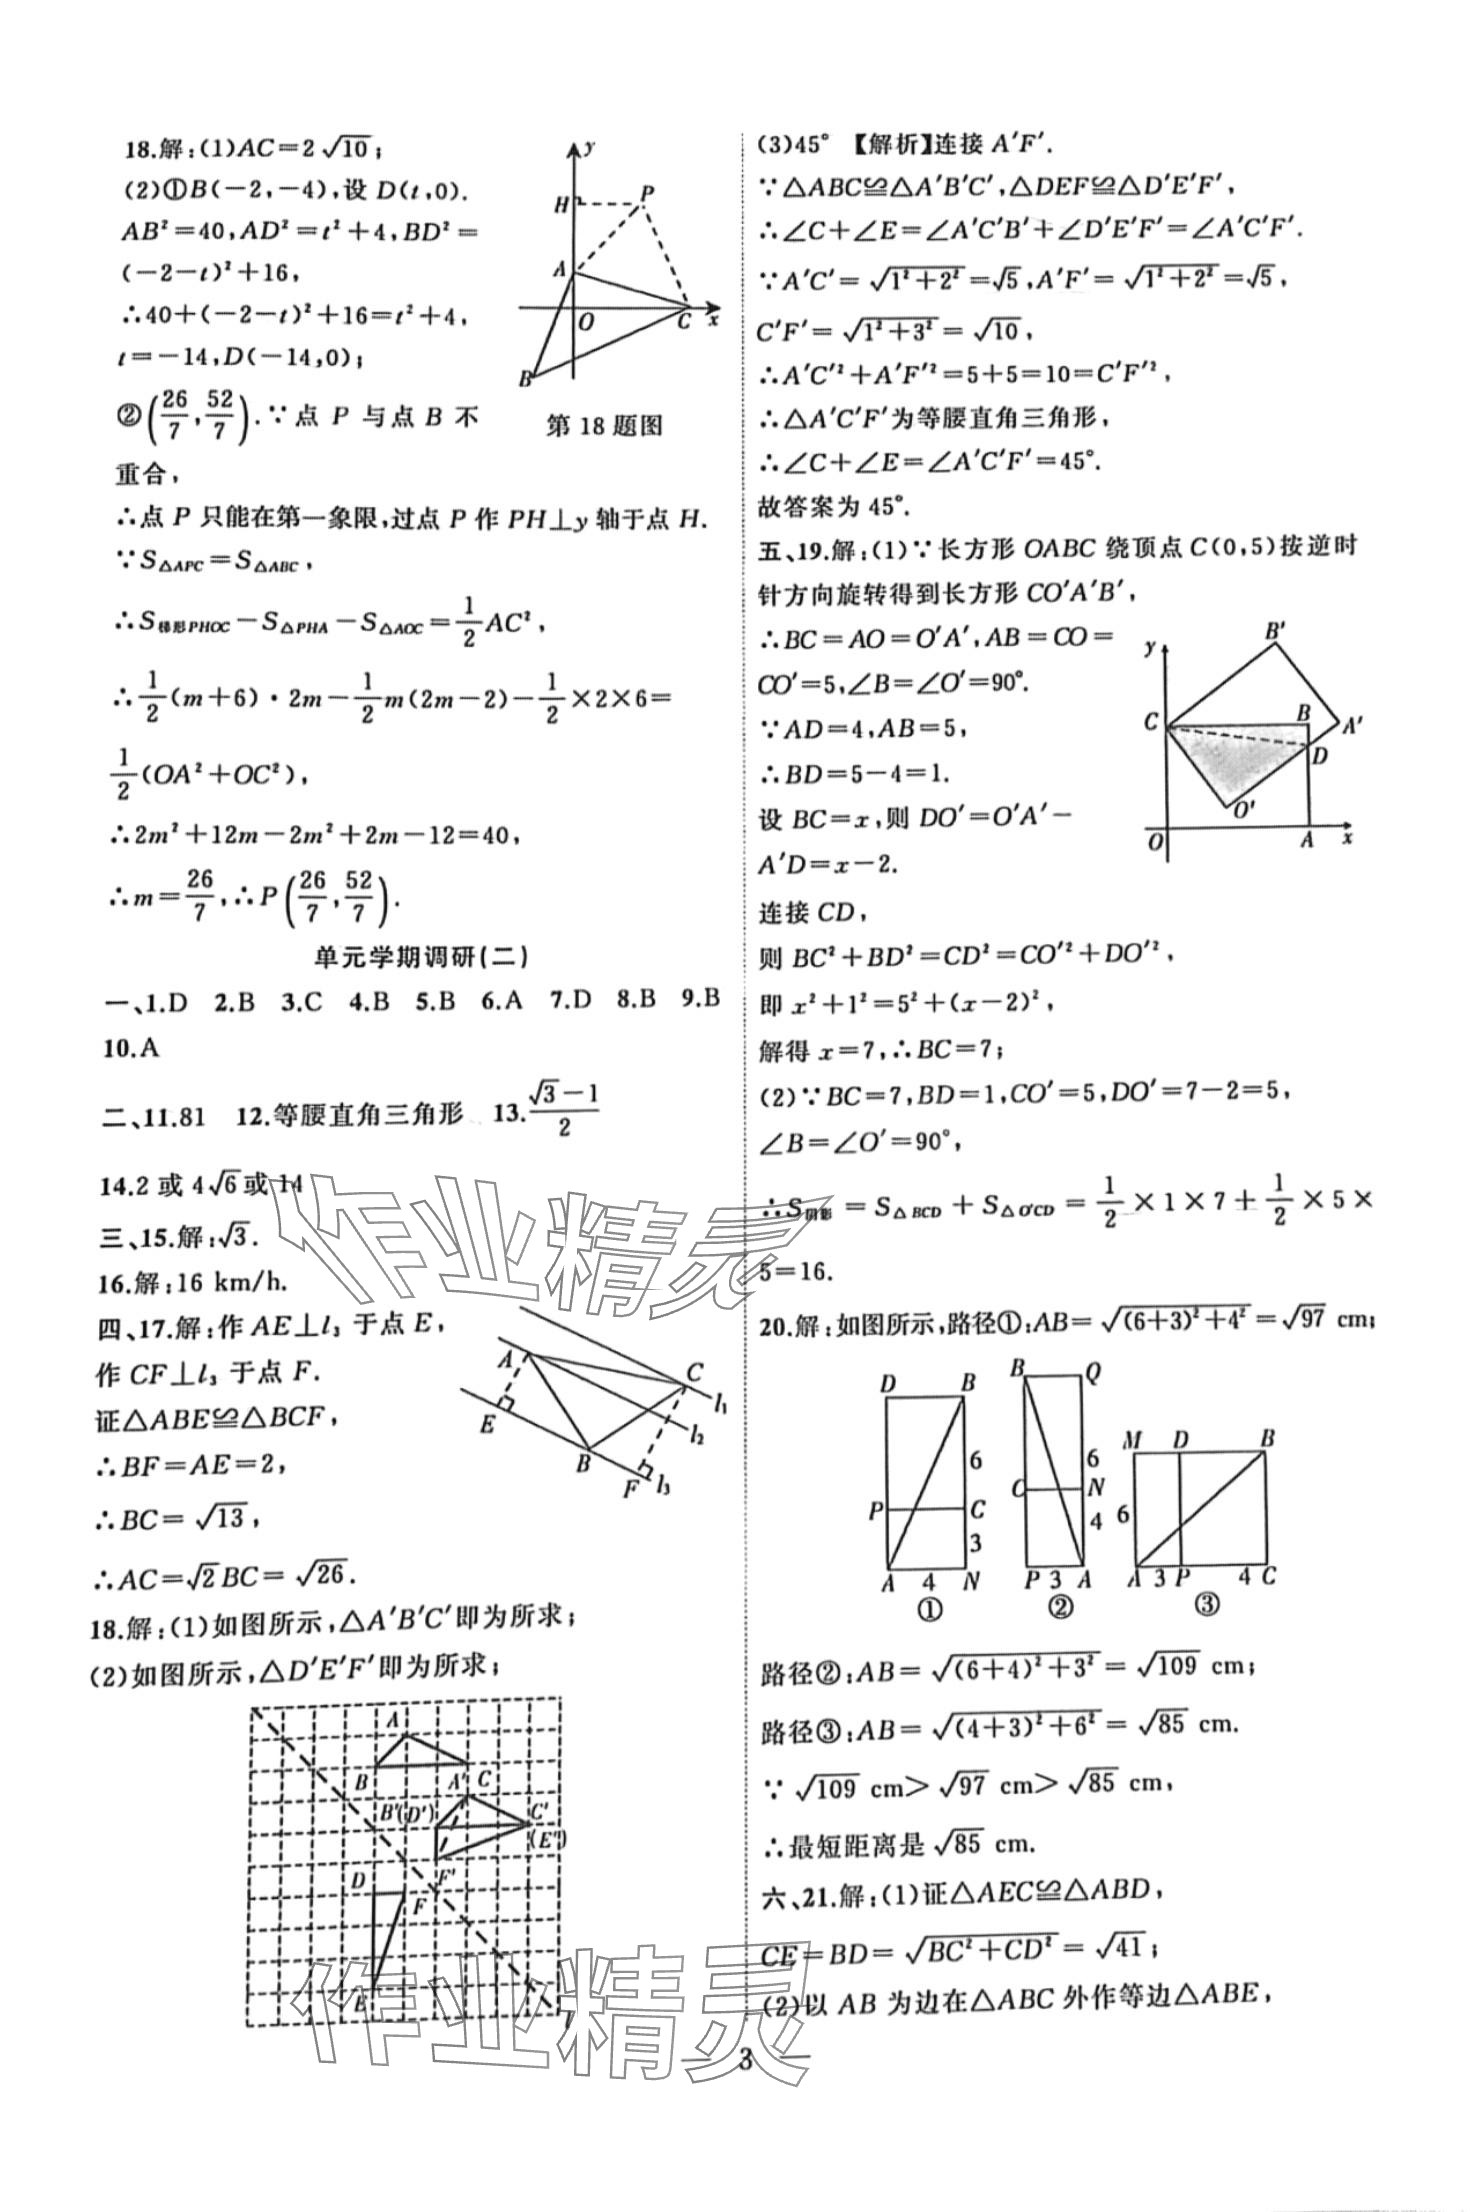 18.解:(1)AC=2√10;
(2)①B(-2,-4),设 D(t,0).
AB²=40,AD²=t²+4,BD²=
(-2-t)²+16,
∴40+(-2-t)²+16=t²+4,
t=-14,D(-14,0);
②(26/7,52/7).∵点 P 与点 B 不
重合,
y
H
P
A
O
C
x
B
第 18 题图
∴点 P 只能在第一象限,过点 P 作 PH⊥y 轴于点 H.
∵S△APC=S△ABC,
∴S梯形PHOC-S△PHA-S△AOC=1/2AC²,
∴1/2(m+6)·2m-1/2m(2m-2)-1/2×2×6=
1/2(OA²+OC²),
∴2m²+12m-2m²+2m-12=40,
∴m=26/7,∴P(26/7,52/7).
单元学期调研(二)
一、1.D 2.B 3.C 4.B 5.B 6.A 7.D 8.B 9.B
10.A
二、11.81 12.等腰直角三角形 13.(√3-1)/2
14.2 或 4√6或 14
三、15.解:√3.
16.解:16 km/h.
四、17.解:作 AE⊥l₃ 于点 E,
作 CF⊥l₃ 于点 F.
证△ABE≌△BCF,
∴BF=AE=2,
∴BC=√13,
∴AC=√2BC=√26.
A
C
l₁
E
l₂
B
F
l₃
18.解:(1)如图所示,△A′B′C′即为所求;
(2)如图所示,△D′E′F′即为所求;
A
B
A′
C
B′(D′)
C′
(E′)
F′
D
F
E
l
(3)45° 【解析】连接 A′F′.
∵△ABC≌△A′B′C′,△DEF≌△D′E′F′,
∴∠C+∠E=∠A′C′B′+∠D′E′F′=∠A′C′F′.
∵A′C′=√(1²+2²)=√5,A′F′=√(1²+2²)=√5,
C′F′=√(1²+3²)=√10,
∴A′C′²+A′F′²=5+5=10=C′F′²,
∴△A′C′F′为等腰直角三角形,
∴∠C+∠E=∠A′C′F′=45°.
故答案为 45°.
五、19.解:(1)∵长方形 OABC 绕顶点 C(0,5)按逆时
针方向旋转得到长方形 CO′A′B′,
∴BC=AO=O′A′,AB=CO=
CO′=5,∠B=∠O′=90°.
∵AD=4,AB=5,
∴BD=5-4=1.
设 BC=x,则 DO′=O′A′-
A′D=x-2.
连接 CD,
y
B′
C
B
A′
D
O′
O
A
x
则 BC²+BD²=CD²=CO′²+DO′²,
即 x²+1²=5²+(x-2)²,
解得 x=7,∴BC=7;
(2)∵BC=7,BD=1,CO′=5,DO′=7-2=5,
∠B=∠O′=90°,
∴S阴影=S△BCD+S△O′CD=1/2×1×7+1/2×5×
5=16.
20.解:如图所示,路径①:AB=√((6+3)²+4²)=√97 cm;
D
B
P
6
C
3
A 4 N
①
B
Q
6
C
N
4
P 3 A
②
M D B
6
A 3 P 4 C
③
路径②:AB=√((6+4)²+3²)=√109 cm;
路径③:AB=√((4+3)²+6²)=√85 cm.
∵√109 cm>√97 cm>√85 cm,
∴最短距离是√85 cm.
六、21.解:(1)证△AEC≌△ABD,
CE=BD=√(BC²+CD²)=√41;
(2)以 AB 为边在△ABC 外作等边△ABE,
— 3 —
作业精灵
作业精灵